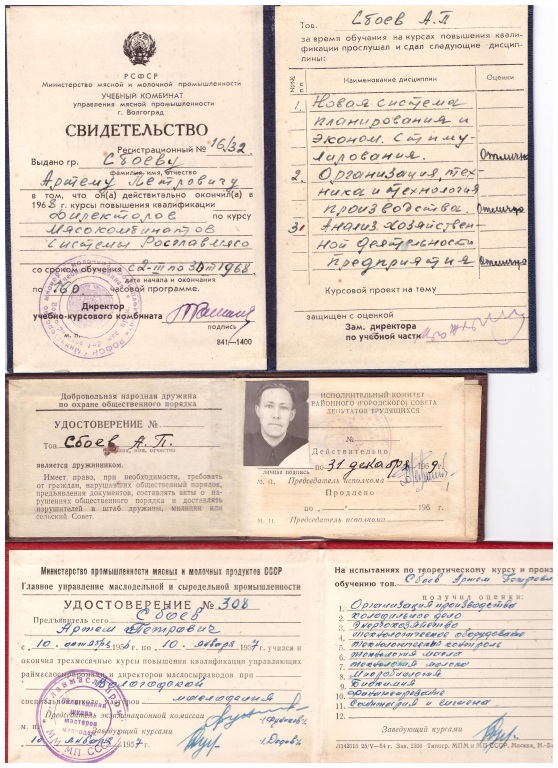 РСФСР
Министерство мясной и молочной промышленности
УЧЕБНЫЙ КОМБИНАТ
управления мясной промышленности
г. Волгоград
СВИДЕТЕЛЬСТВО
Регистрационный № 16/32
Выдано гр. Сбоеву
фамилия, имя, отчество
Артему Петровичу
в том, что он(а) действительно окончил(а) в
1968 г. курсы повышения квалификации
Директоров по курсу
Мясокомбинатов
Системы Росглавмясо
со сроком обучения с 2-III по 30 III 1968
дата начала и окончания
по 160 часовой программе.
Директор
учебно-курсового комбината
подпись
м. п.
841—1400
Тов. Сбоев А.П
за время обучения на курсах повышения квали-
фикации прослушал и сдал следующие дисцип-
лины:
№№ п/п Наименование дисциплин Оценки
1. Новая система
планирования и
эконом. стиму-
лирования. Отлично
2. Организация, тех-
ника и технология
производства. Отлично
3. Анализ хозяйствен-
ной деятельности
предприятия Отлично
Курсовой проект на тему
защищен с оценкой
Зам. директора
по учебной части
Добровольная народная дружина
по охране общественного порядка
УДОСТОВЕРЕНИЕ №
Тов. Сбоев А. П.
фамилия, имя, отчество
является дружинником.
Имеет право, при необходимости, требовать
от граждан, нарушивших общественный порядок,
предъявления документов, составлять акты о на-
рушениях общественного порядка и доставлять
нарушителей в штаб дружины, милиции или
сельский Совет.
личная подпись
ИСПОЛНИТЕЛЬНЫЙ КОМИТЕТ
РАЙОННОГО (ГОРОДСКОГО) СОВЕТА
ДЕПУТАТОВ ТРУДЯЩИХСЯ
№
Действительно
по 31 декабря 1969 г.
М. П. Председатель исполкома
Продлено
по „ — “ 196 г.
М. П. Председатель исполкома
Министерство промышленности мясных и молочных продуктов СССР
Главное управление маслодельной и сыродельной промышленности
УДОСТОВЕРЕНИЕ № 308
Предъявитель сего Сбоев
Артем Петрович
с „10“ октября 1956 г. по „10“ января 1957 г. учился и
окончил трехмесячные курсы повышения квалификации управляющих
раймаслосырпромами и директоров маслосырзаводов при
Вологодской
специальной школе маслоделия
Председатель экзаменационной комиссии
м. п. Заведующий курсами
„10“ января 1957 г.
На испытаниях по теоретическому курсу и произ
обучению тов. Сбоев Артем Петрович
получил оценки:
1. Организация производства
2. Холодильное дело
3. Энергохозяйство
4. Технологическое оборудование
5. Технохимический контроль
6. Технология масла
7. Технология молока
8. Микробиология
9. Биохимия
10. Финансирование
11. Санитария и гигиена
12.
Заведующий курсами